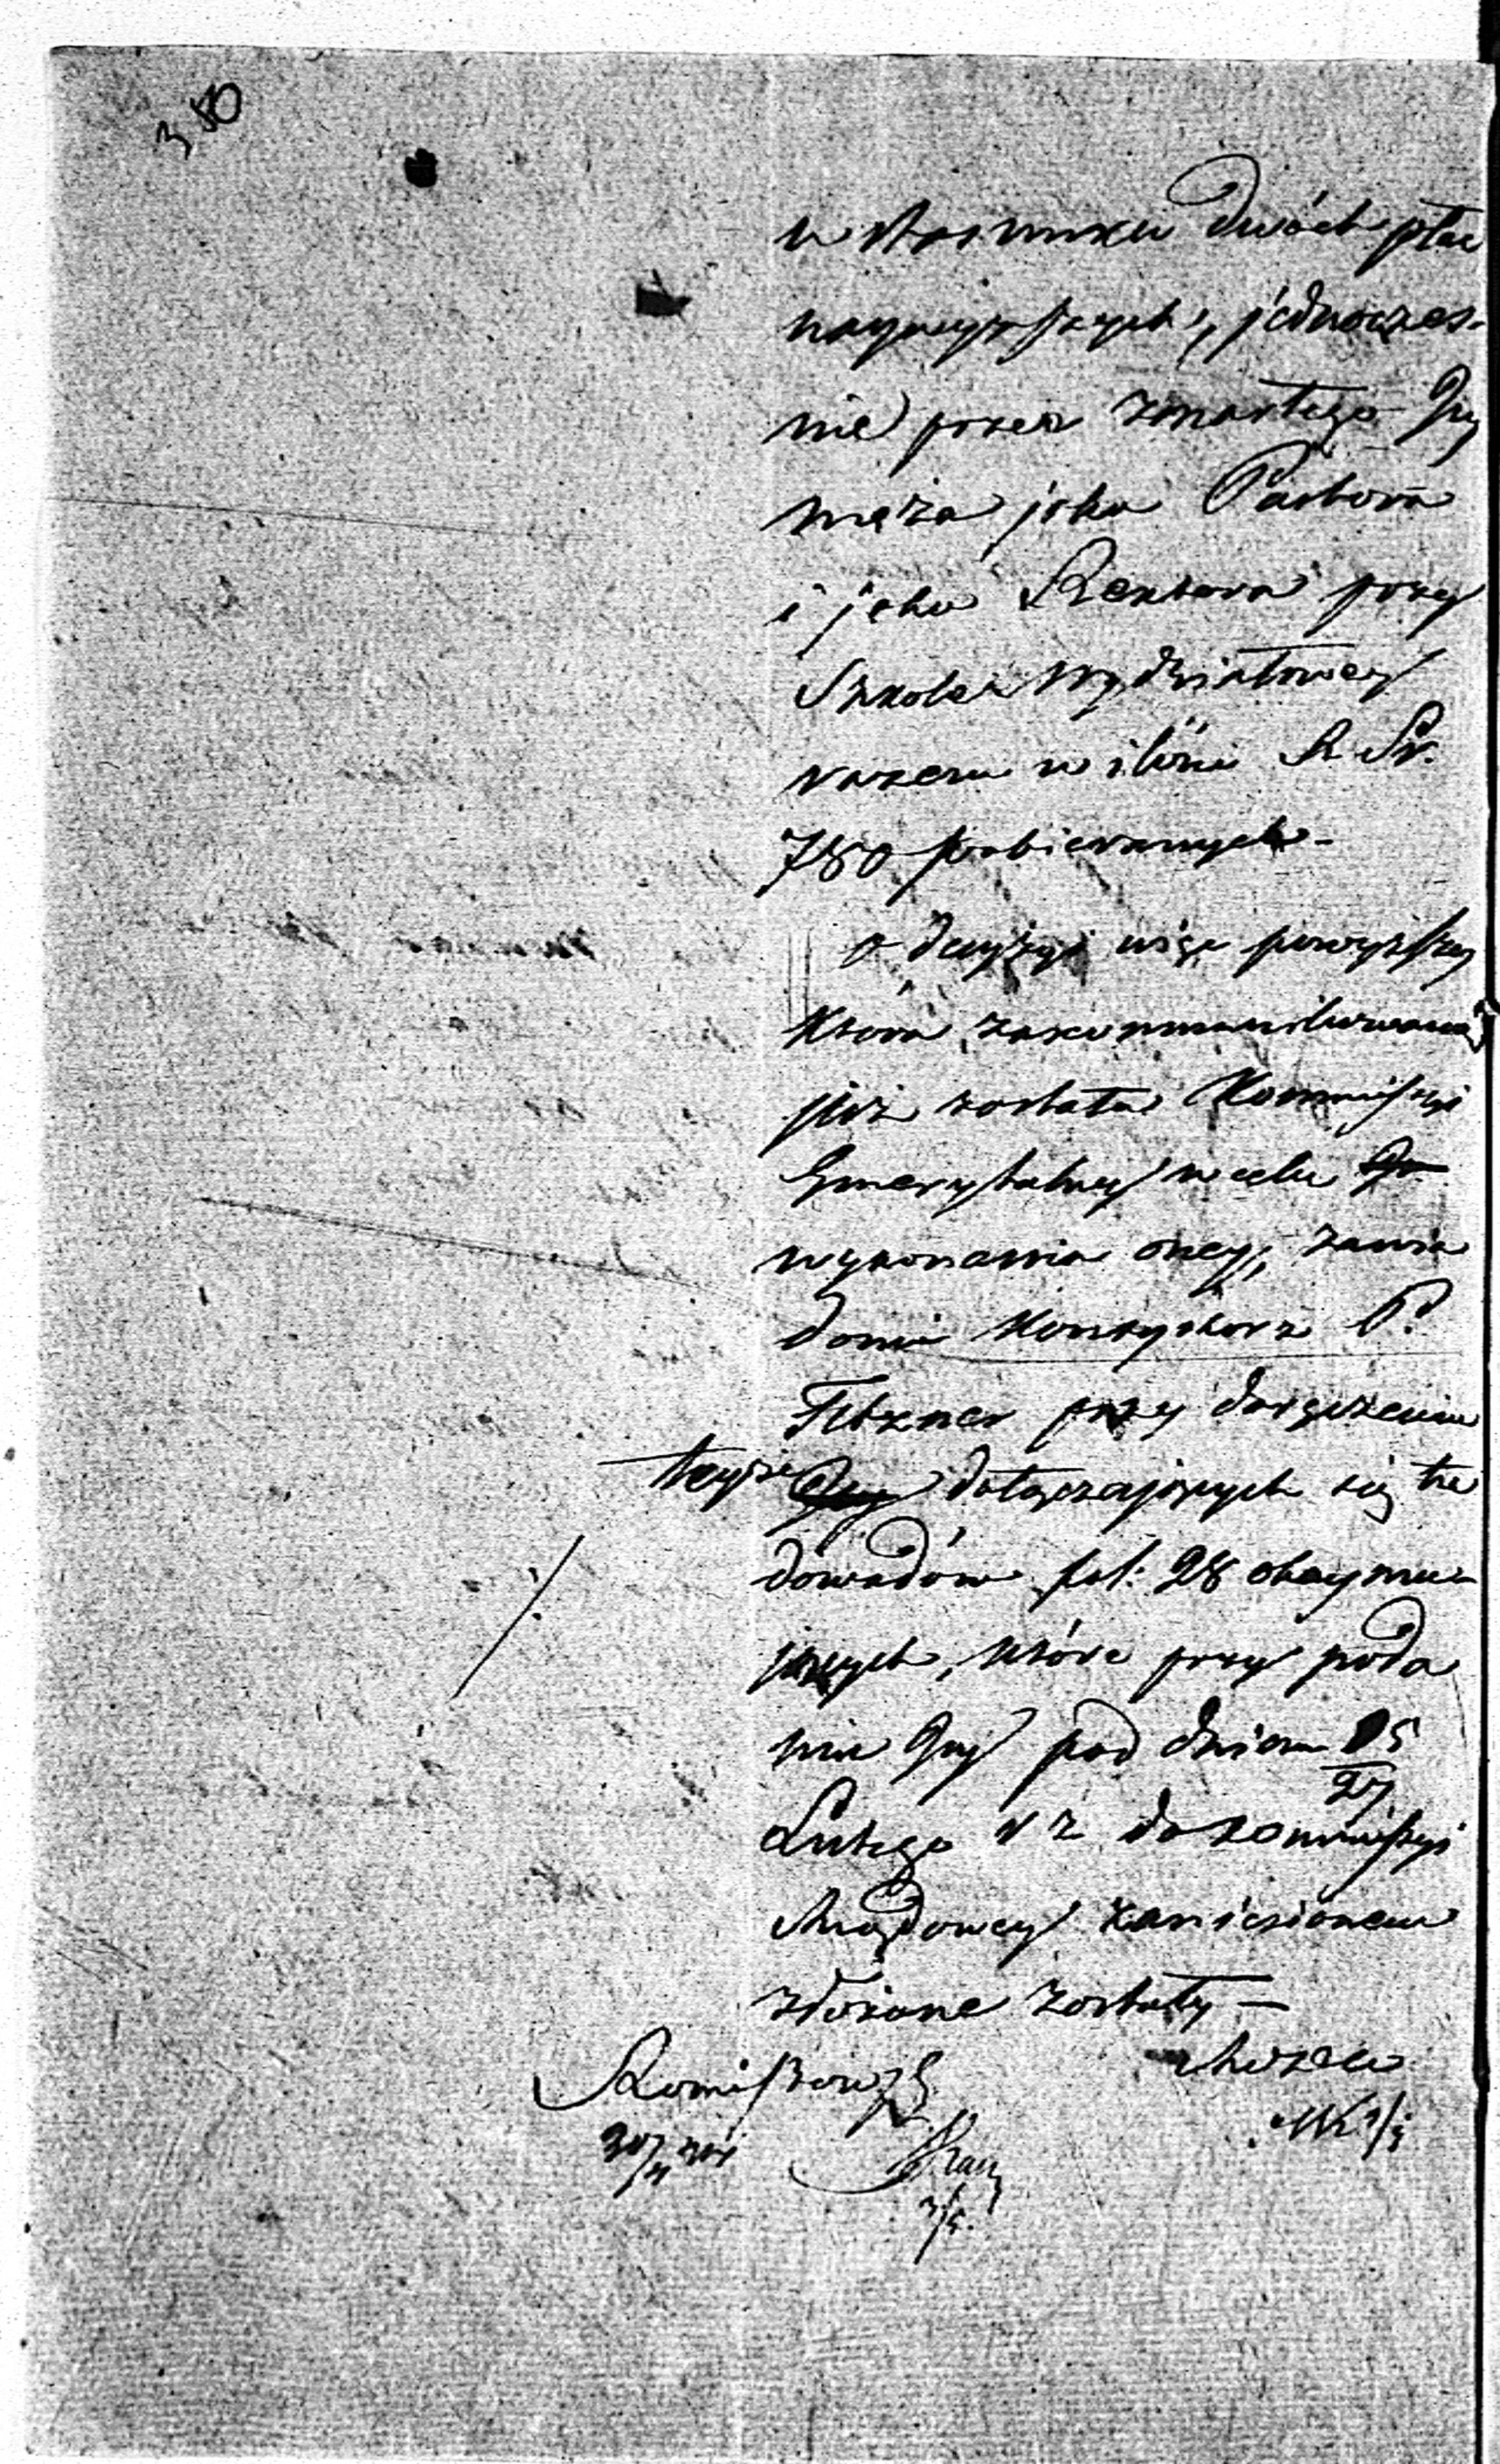 350
w stosunku dwóch płac
naywyższych, jednocześ-
nie przez zmarłego Jey
męża jako Pastora
i jako Rektora przy
Szkole Wydziałowey
razem w ilości R Sr.
780 pobieranych -
o decyzyi więc powyższey
która zakommunikowaną
już została Kommissyi
Emerytalney w celu
wykonania oney, zawia
damia Konsystorz P.
przy dołączeniu
teyże dotyczających się tu
dowodów fol: 28 obeymu-
jących, które przy poda
niu Jey pod dniem 15/27
Lutego r z do Kommissyi
Rządowey zaniesionem
złożone zostały —